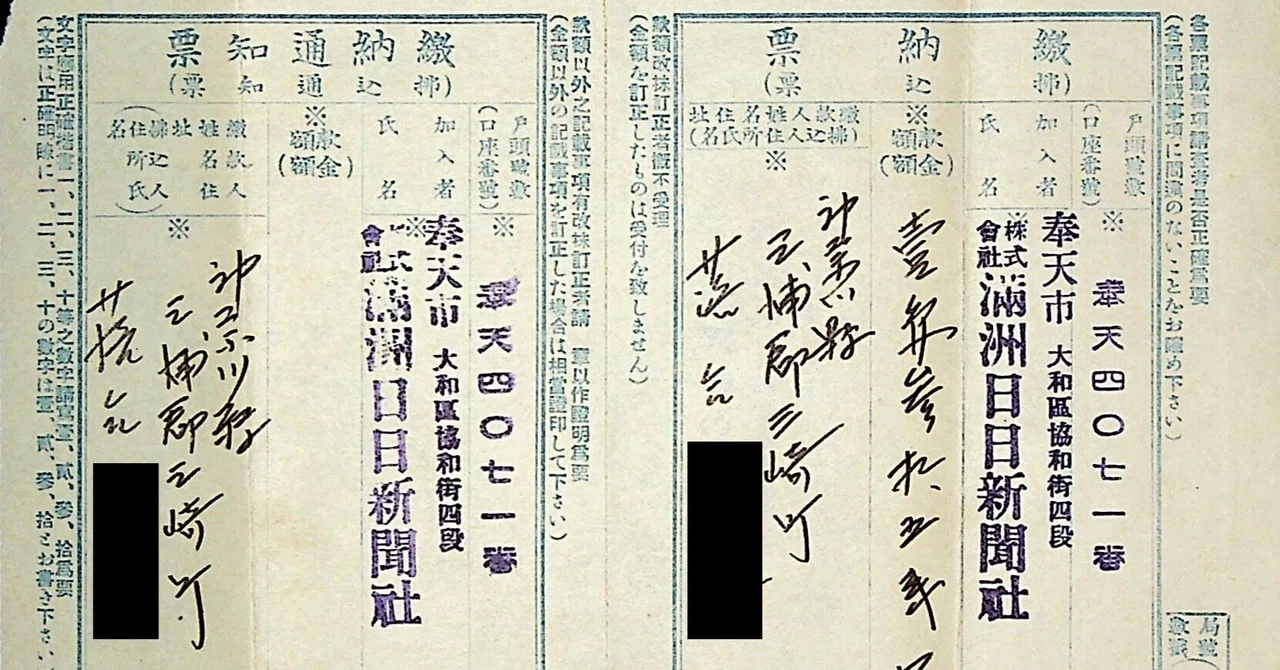 各票記載事項請查看是否正確爲要
(各票記載事項に間違のないことをお確め下さい)
繳納票
(拂込票)
戶頭號數
(口座番號)
※
奉天四〇七一番
加入者
氏名
※
奉天市 大和區協和街四段
株式會社滿洲日日新聞社
※
款額
(金額)
壹
繳款人姓名住址
(拂込人住所氏名)
※
神奈川縣
三浦郡三崎町
款額改抹訂正者概不受理
(金額を訂正したものは受付を致しません)
款額以外之記載事項有改抹訂正者請
以作證明爲要
(金額以外の記載事項を訂正した場合は相當證印して下さい)
繳納通知票
(拂込通知票)
戶頭號數
(口座番號)
※
奉天四〇七一番
加入者
氏名
※
奉天市 大和區協和街四段
株式會社滿洲日日新聞社
※
款額
(金額)
繳款人姓名住址
(拂込人住所氏名)
※
神奈川縣
三浦郡三崎町
文字應用正確楷書一、二、三、十等之數字請寫壹、貳、參、拾爲要
(文字は正確明瞭に一、二、三、十の數字は壹、貳、參、拾とお書き下さい
局號